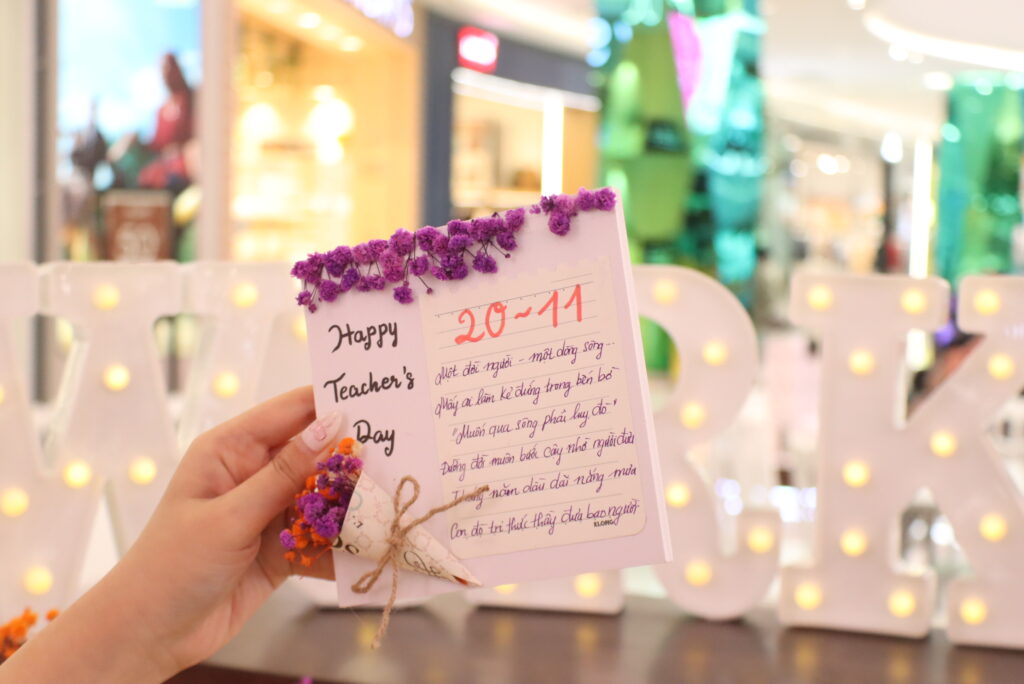 Happy
Teacher's
Day
20~11
Một đời người - một dòng sông...
Mấy ai làm kẻ đứng trong bến bờ
"Muốn qua sông phải lụy đò"
Đường đời muôn bước cậy nhờ người đưa
Tháng năm dầu dãi nắng mưa
Con đò tri thức thầy đưa bao người
KLONG